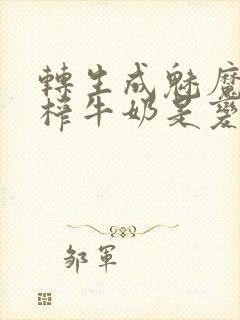 轉生成魅魔
榨牛奶是變
邹軍